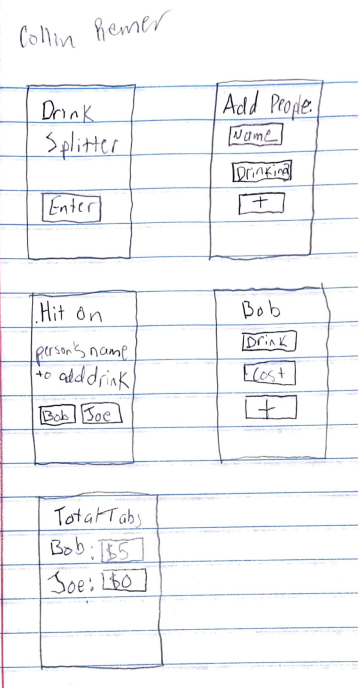 Collin Remer
Drink
Splitter
Enter
Add People.
Name
Drinking
+
Hit on
person's name
to add drink
Bob Joe
Bob
Drink
Cost
+
Total Tabs
Bob: $5
Joe: $0